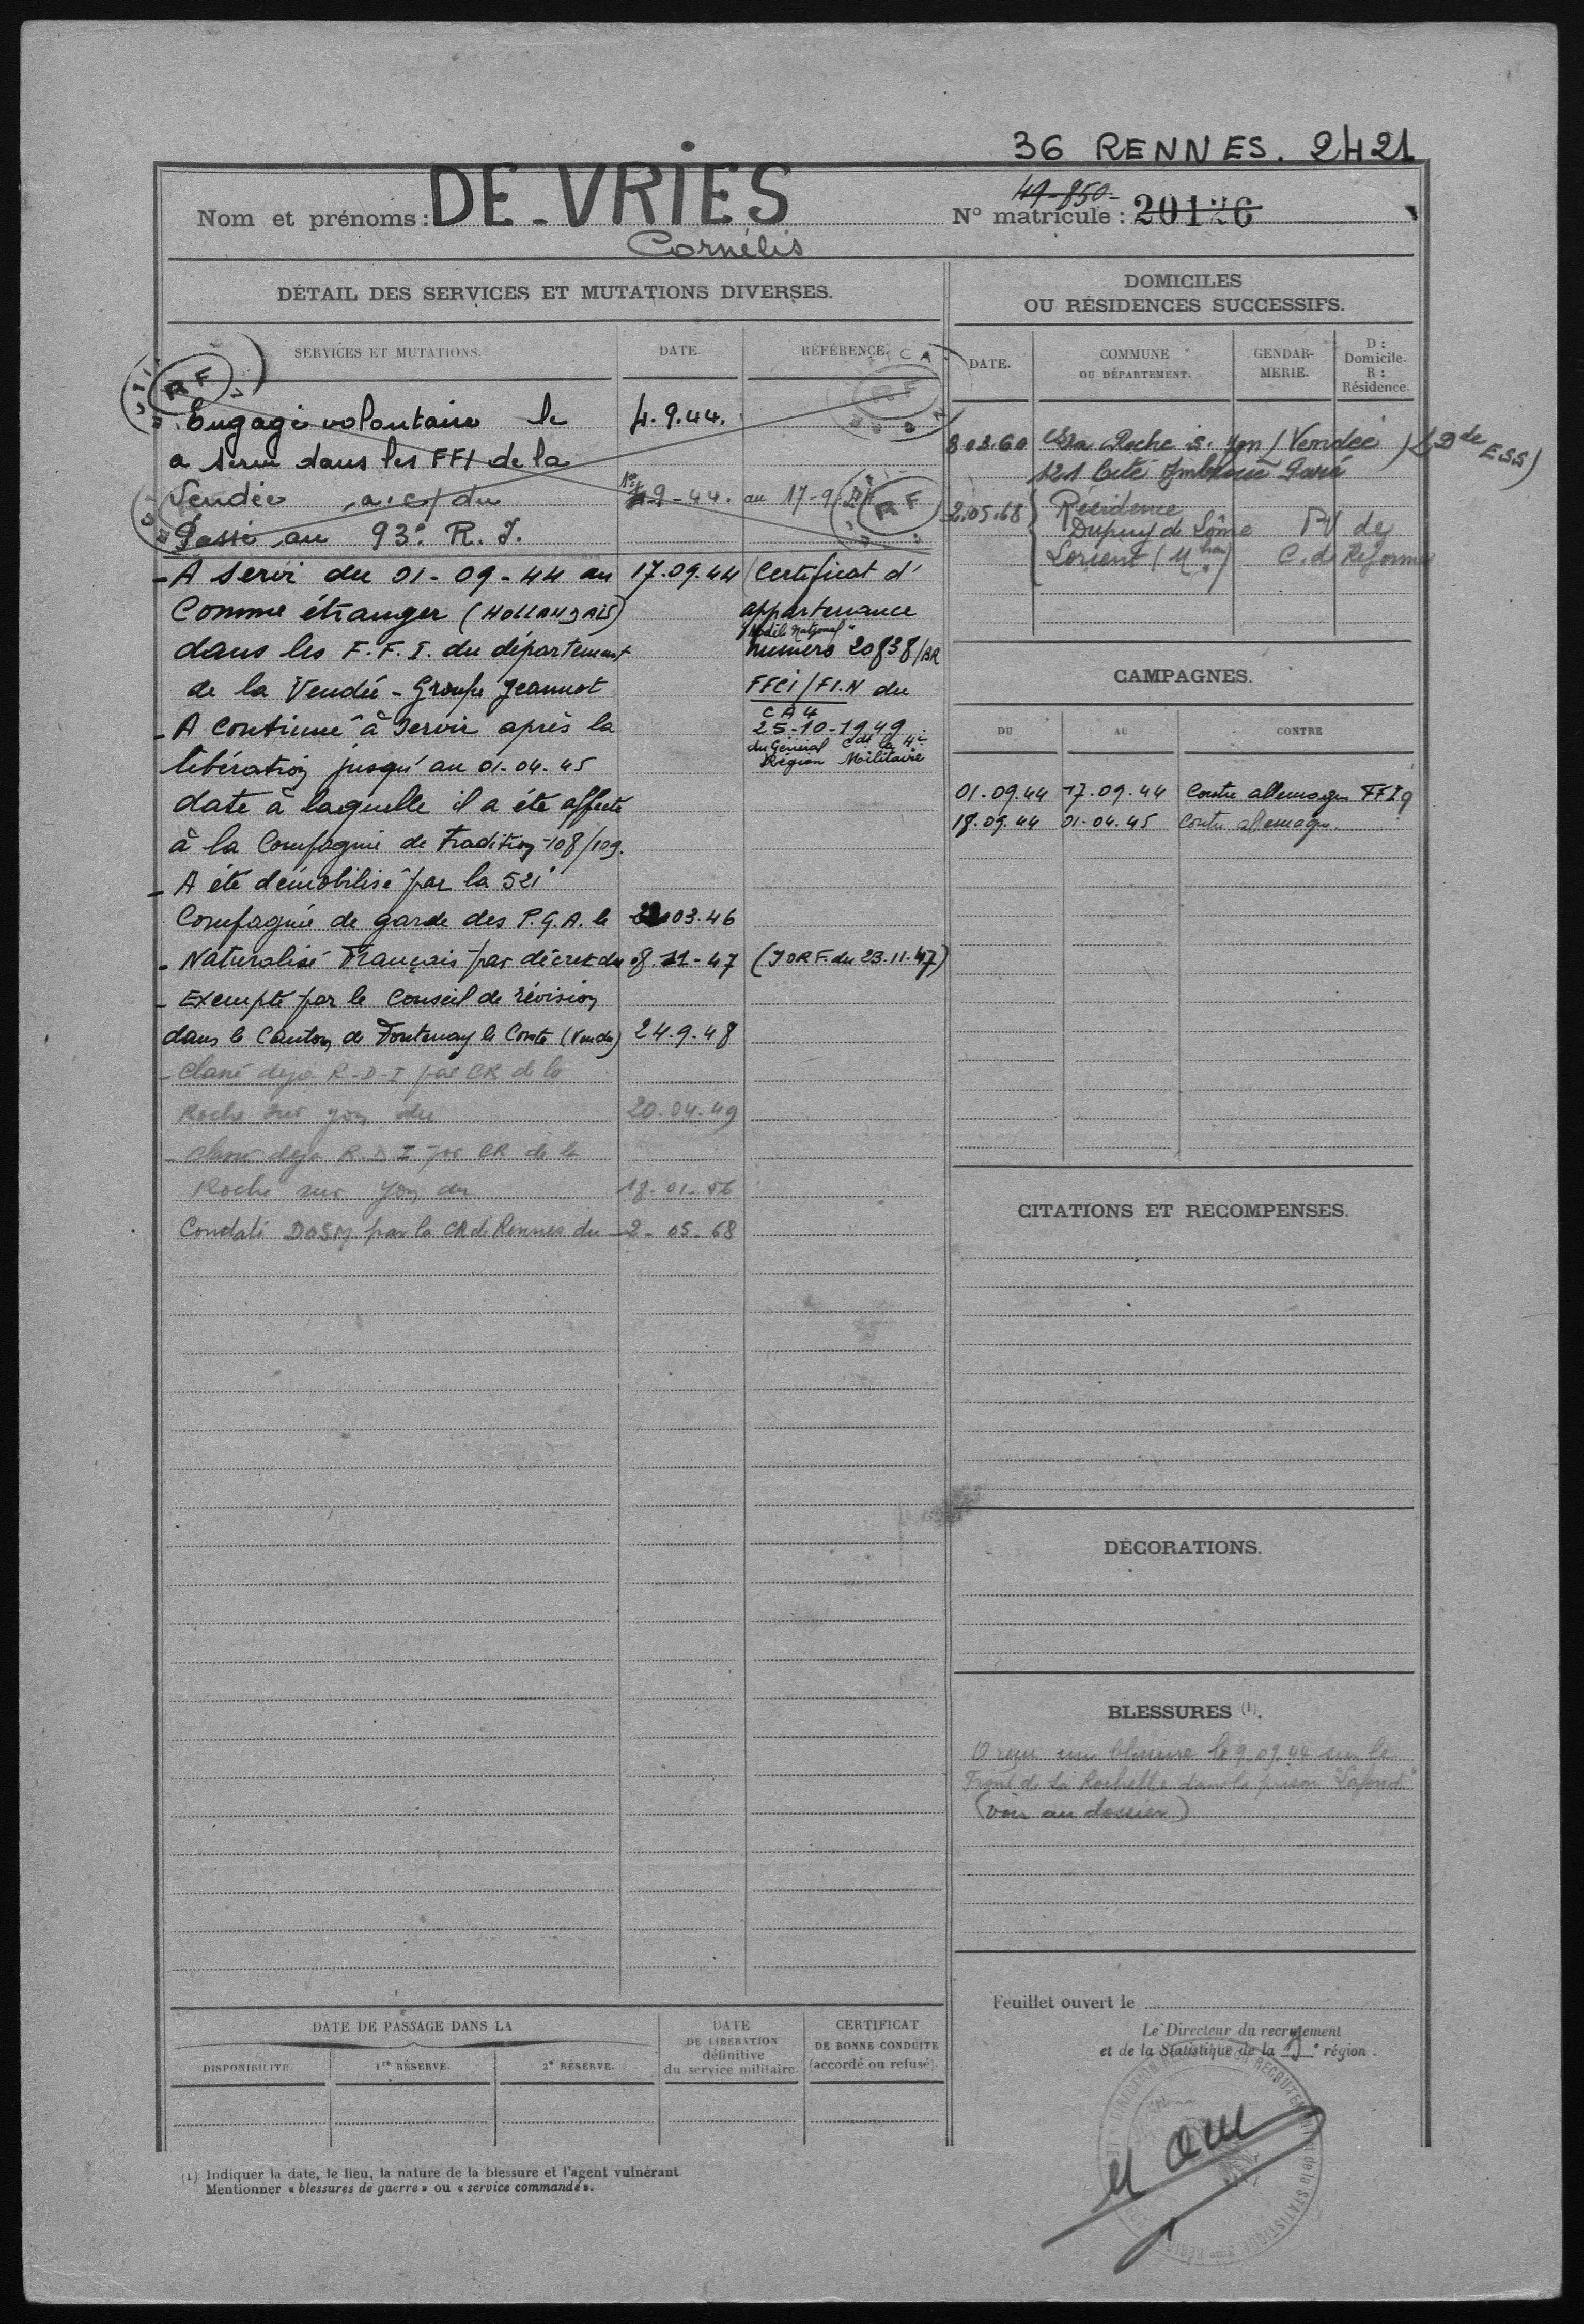 36 RENNES. 2421
Nom et prénoms : DE-VRIES
Cornélis
49-850-
N° matricule : 20126
DÉTAIL DES SERVICES ET MUTATIONS DIVERSES.
SERVICES ET MUTATIONS. DATE. RÉFÉRENCE.
Engagé volontaire le 4.9.44.
a servi dans les FFI de la
Vendée a.c/ du 9-44. au 17-9
Passé au 93e R.I.
RF
RF
- A servi du 01-09-44 au 17.09.44 Certificat d'
Comme étranger (HOLLANDAIS) appartenance
"Modèle National"
dans les F.F.I. du département numéro 20838/BR
de la Vendée - Groupe Jeannot FFCI/FI.N du
CA4
- A continué à servir après la 25-10-1949
du Général Cdt la 4e
libération jusqu'au 01-04-45 Région Militaire
date à laquelle il a été affecté
à la Compagnie de Tradition 108/109.
- A été démobilisé par la 521e
Compagnie de garde des P.G.A. le 03.46
- Naturalisé Français par décret du 08-11-47 (JORF. du 23.11.47)
- Exempté par le Conseil de révision
dans le Canton de Fontenay le Comte (Vendée) 24.9.48
- Classé deja R-D-I par CR de la
Roche sur yon du 20-04-49
- Classé deja R.D.I par CR de la
Roche sur Yon du 18-01-56
Constaté DASM par la CR de Rennes du 2-05-68
DOMICILES
OU RÉSIDENCES SUCCESSIFS.
DATE. COMMUNE OU DÉPARTEMENT. GENDARMERIE. D : Domicile. R : Résidence.
8.03.60 La Roche s. Yon (Vendée) (Dde ESS)
121 Cité Ambroise Paré
2.05.68 Résidence
Dupuy de Lôme PV de
Lorient (Mhan) C. de Réforme
CAMPAGNES.
DU AU CONTRE
01.09.44 17.09.44 Contre allemagne FFI
18.09.44 01.04.45 Contre allemagne
CITATIONS ET RÉCOMPENSES.
DÉCORATIONS.
BLESSURES (1).
A reçu une blessure le 9.09.44 sur le
Front de La Rochelle dans la prison "Lafond"
(voir au dossier)
DATE DE PASSAGE DANS LA
DISPONIBILITÉ. 1re RÉSERVE. 2e RÉSERVE.
DATE
DE LIBÉRATION
définitive
du service militaire.
CERTIFICAT
DE BONNE CONDUITE
(accordé ou refusé).
Feuillet ouvert le
Le Directeur du recrutement
et de la Statistique de la région.
(1) Indiquer la date, le lieu, la nature de la blessure et l'agent vulnérant.
Mentionner « blessures de guerre » ou « service commandé ».